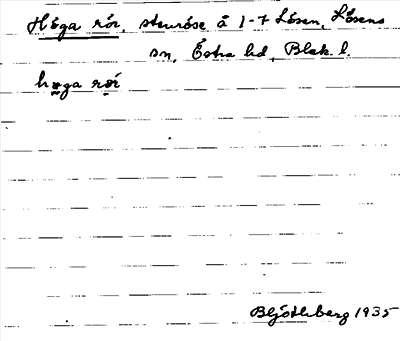 Höga rör, stenröse å 1-7 Lösen, Lösens
sn, Östra hd, Blek. l.
høga rør
1935